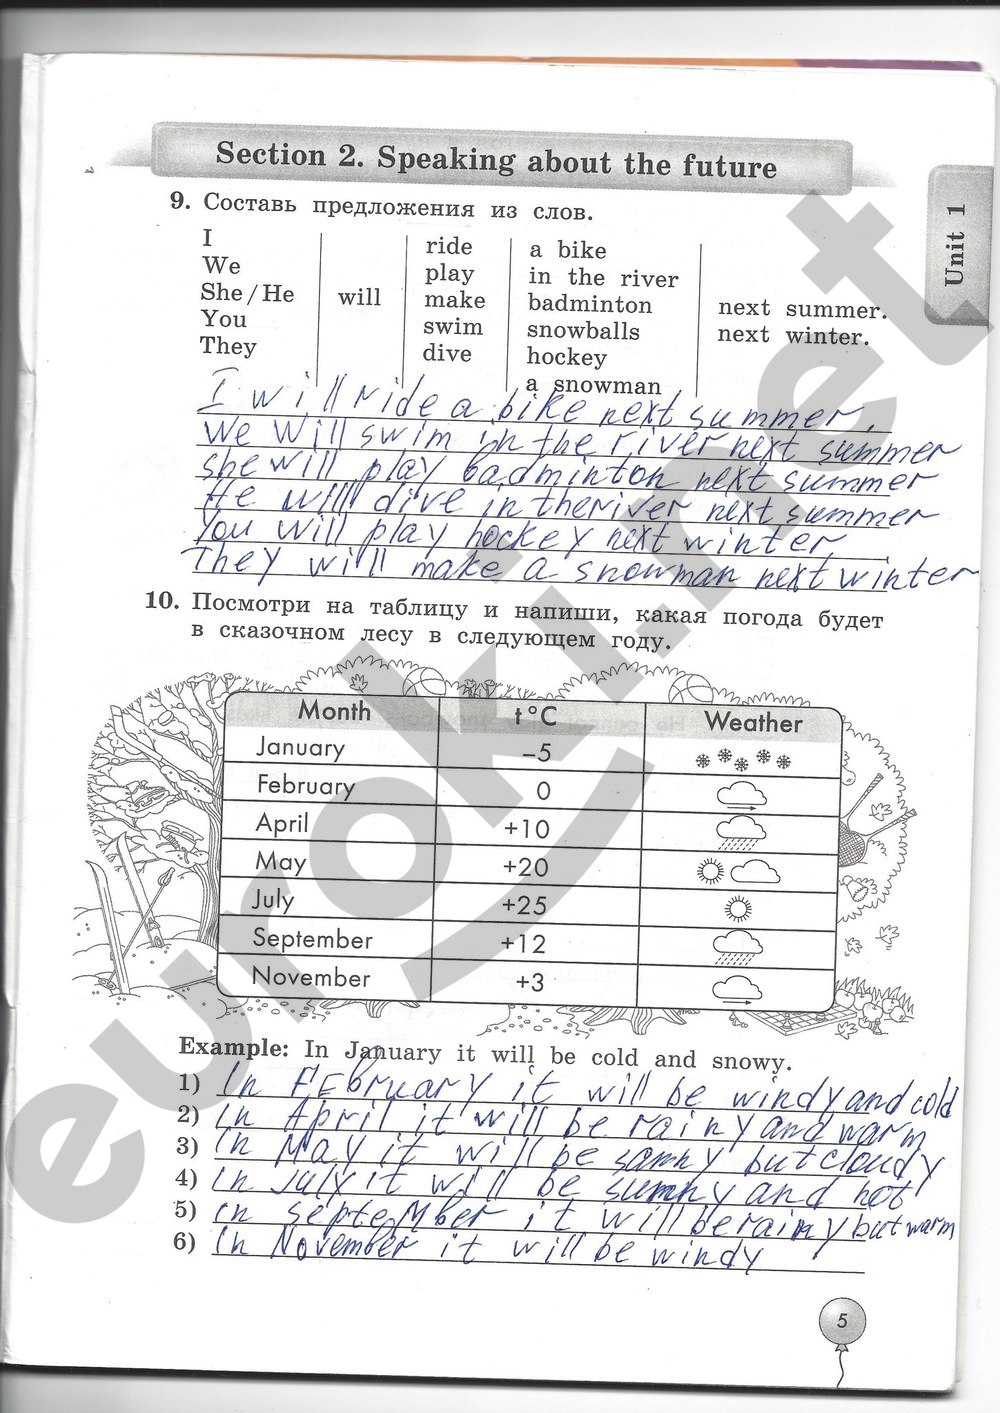 Section 2. Speaking about the future
Unit 1
9. Составь предложения из слов.
I
We
She / He
You
They
will
ride
play
make
swim
dive
a bike
in the river
badminton
snowballs
hockey
a snowman
next summer.
next winter.
I will ride a bike next summer.
We will swim in the river next summer
she will play badminton next summer
He will dive in theriver next summer
You will play hockey next winter
They will make a snowman next winter
10. Посмотри на таблицу и напиши, какая погода будет
в сказочном лесу в следующем году.
Month t °C Weather
January –5
February 0
April +10
May +20
July +25
September +12
November +3
Example: In January it will be cold and snowy.
1) In February it will be windy and cold
2) in April it will be rainy and warm
3) in May it will be sanny but cloudy
4) in July it will be sunny and hot
5) in september it will be rainy but warm
6) in November it will be windy
5
euroki.net